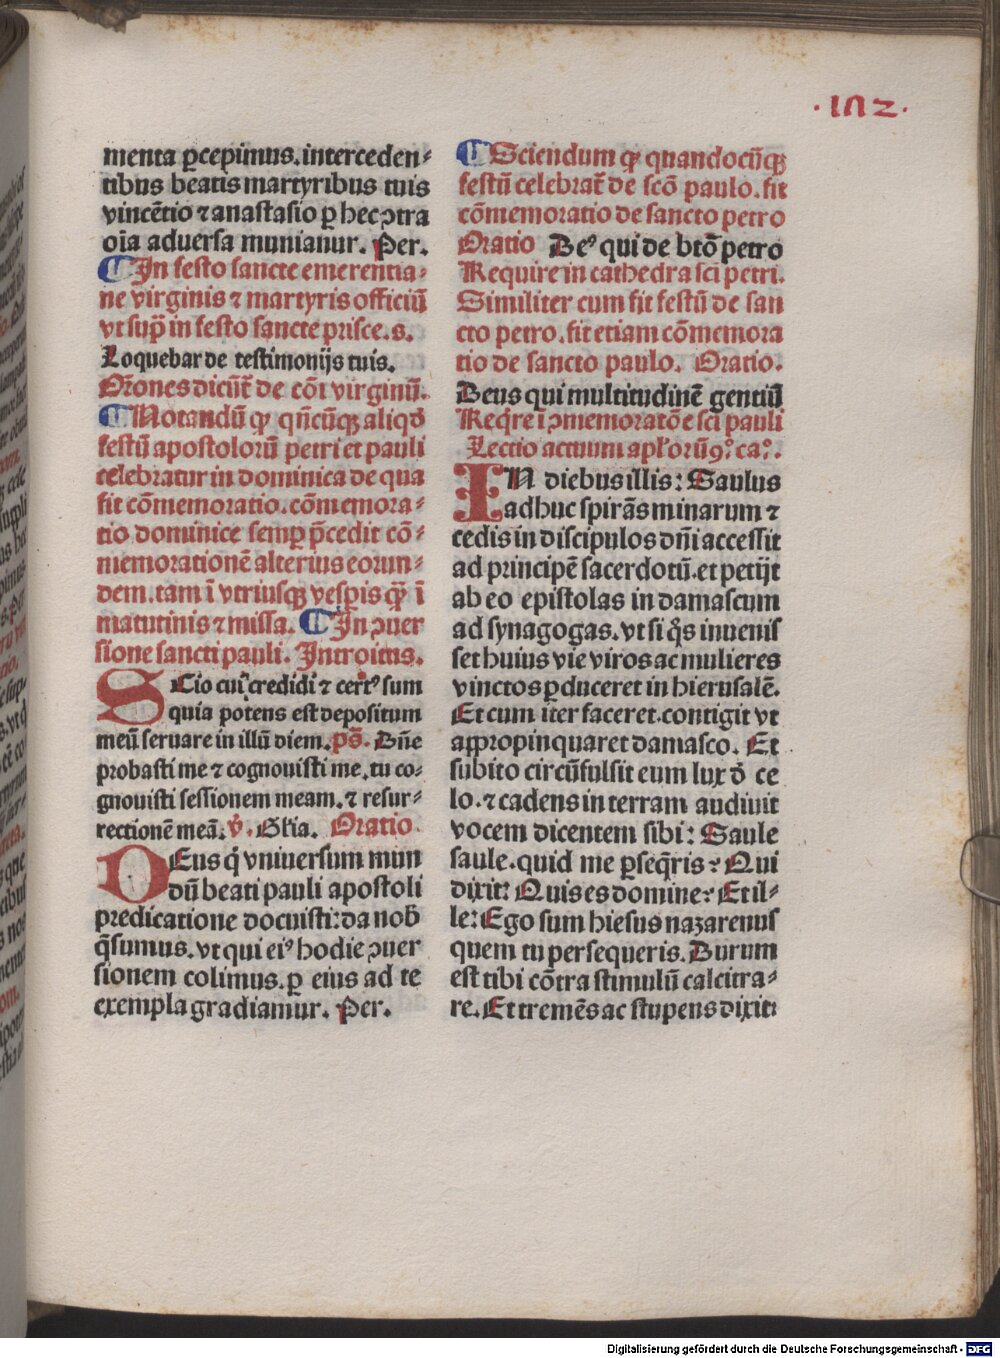 ·182·
menta ꝑcepimus.interceden⸗
tibus beatis martyribus tuis
vincētio ⁊ anastasio ꝑ hec ꝯtra
oīa aduersa muniamur. Per.
¶ In festo sancte emerentia⸗
ne virginis ⁊ martyris officiū
vt supͣ in festo sancte prisce.s.
Loquebar de testimonijs tuis.
Oŕones dicūt̉ de cōi virginū.
¶ Notandū ꝙ qn̄cūqꝫ aliqd̓
festū apostolorū petri et pauli
celebratur in dominica de qua
fit cōmemoratio.cōmemora⸗
tio dominice semꝑ p̄cedit cō⸗
memorationē alterius eorun⸗
dem.tam ī vtriusqꝫ vesꝑis qͣꝫ ī
matutinis ⁊ missa. ¶ In ꝯuer
sione sancti pauli. Introitus.
SCio cui credidi ⁊ cert⁹ sum
quia potens est depositum
meū seruare in illū diem.pō. Dn̄e
probasti me ⁊ cognouisti me.tu co⸗
gnouisti sessionem meam.⁊ resur⸗
rectionē meā.v̓. Głia. Oratio
DEus q̇ vniuersum mun
dū beati pauli apostoli
predicatione docuisti:da nob̓
q̄sumus.vt qui ei⁹ hodie ꝯuer
sionem colimus.ꝑ eius ad te
exempla gradiamur. Per.
¶ Sciendum ꝙ quandocūqꝫ
festū celebrat̉ de scō paulo.fit
cōmemoratio de sancto petro
Oratio De⁹ qui de btō petro
Require in cathedra sci petri.
Similiter cum fit festū de san
cto petro.fit etiam cōmemora
tio de sancto paulo. Oratio.
Deus qui multitudinē gentiū
Reqͥre ī ꝯmemoratōe sci pauli
Lectio actuum apłorū 9.° ca.°.
IN diebus illis: Saulus
adhuc spirās minarum ⁊
cedis in discipulos dn̄i accessit
ad principē sacerdotū.et petijt
ab eo epistolas in damascum
ad synagogas.vt si q̇s inuenis
set huius vie viros ac mulieres
vinctos ꝑduceret in hierusalē.
Et cum iter faceret.contigit vt
appropinquaret damasco. Et
subito circūfulsit eum lux d̓ ce
lo.⁊ cadens in terram audiuit
vocem dicentem sibi: Saule
saule.quid me ꝑseq̄ris? Qui
dixit: Quis es domine? Et il⸗
le: Ego sum hiesus nazarenus
quem tu persequeris. Durum
est tibi cōtra stimulū calcitra⸗
re. Et tremēs ac stupens dixit:
Digitalisierung gefördert durch die Deutsche Forschungsgemeinschaft - DFG